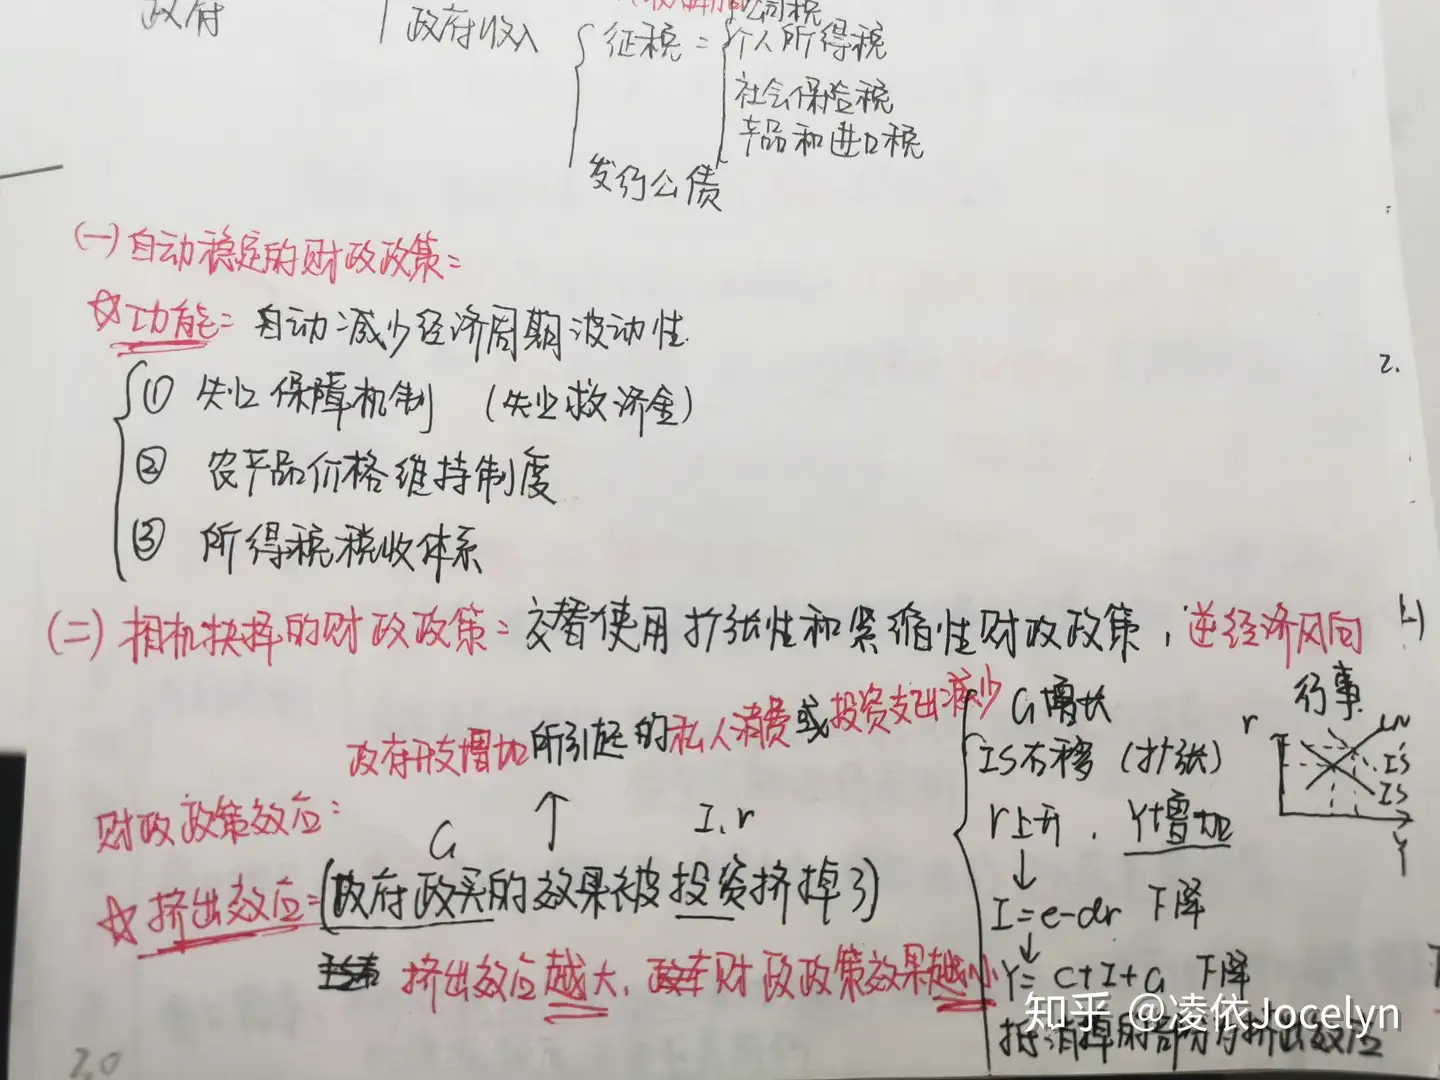 政府
政府收入
征税 = 公司税
个人所得税
社会保险税
产品和进口税
发行公债
(一) 自动稳定的财政政策:
☆功能: 自动减少经济周期波动性.
① 失业保障机制 (失业救济金)
② 农产品价格维持制度
③ 所得税税收体系
(二) 相机抉择的财政政策: 交替使用扩张性和紧缩性财政政策, 逆经济风向
行事
政府开支增加所引起的私人消费或投资支出减少
财政政策效应:
G ↑ I, r
☆挤出效应: (政府政买的效果被投资挤掉了)
挤出效应越大, 财政政策效果越小
G增长
IS右移 (扩张)
r上升, Y增加
↓
I=e-dr 下降
↓
Y=C+I+G 下降
抵消掉的部分为挤出效应
r
LM
IS'
IS
Y
2.
1)
2,0
知乎 @凌依Jocelyn